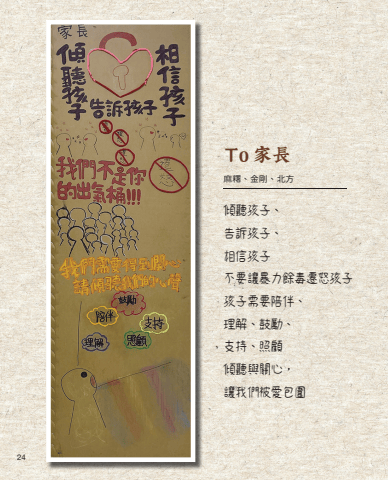 家長
傾聽孩子
相信孩子
告訴孩子
我們不是你
的出氣桶!!!
我們需要得到關心
請傾聽我們的心聲
鼓勵
陪伴
支持
理解
照顧
To 家長
麻糬、金剛、北方
傾聽孩子、
告訴孩子、
相信孩子
不要讓暴力餘毒遷怒孩子
孩子需要陪伴、
理解、鼓勵、
支持、照顧
傾聽與關心，
讓我們被愛包圍
24